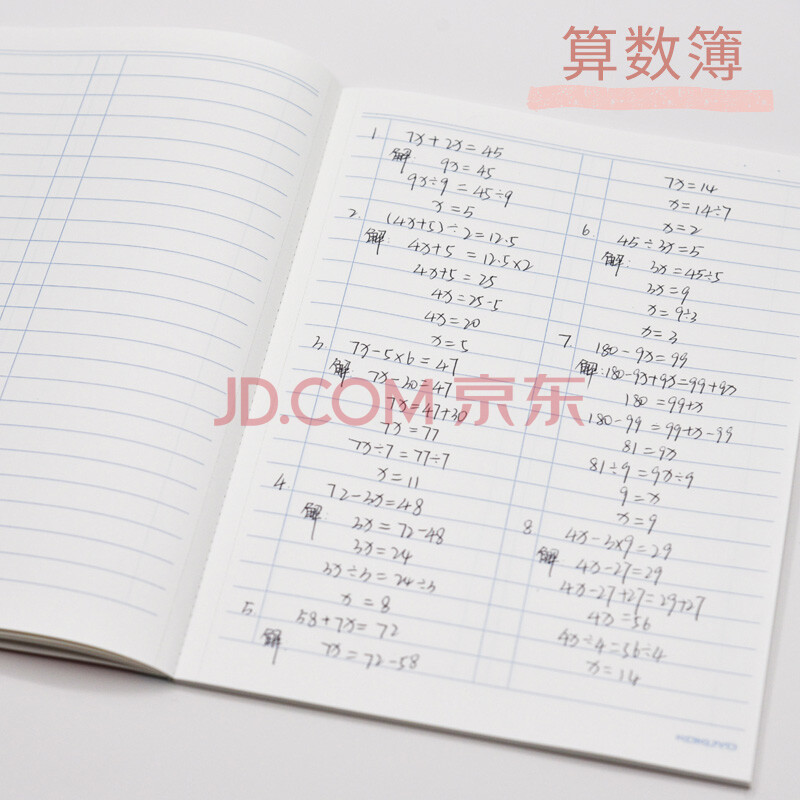 算数簿
1 7x+2x=45
解 9x=45
9x÷9=45÷9
x=5
2. (4x+5)÷2=12.5
解: 4x+5=12.5×2
4x+5=25
4x=25-5
4x=20
x=5
3. 7x-5×6=47
解: 7x-30=47
7x=47+30
7x=77
7x÷7=77÷7
x=11
4. 72-3x=48
解: 3x=72-48
3x=24
3x÷3=24÷3
x=8
5. 58+7x=72
解: 7x=72-58
7x=14
x=14÷7
x=2
6 45÷3x=5
解: 3x=45÷5
3x=9
x=9÷3
x=3
7. 180-9x=99
解:180-9x+9x=99+9x
180=99+x
180-99=99+x-99
81=9x
81÷9=9x÷9
9=x
x=9
8. 4x-3×9=29
解: 4x-27=29
4x-27+27=29+27
4x=56
4x÷4=56÷4
x=14
KOKUYO
JD.COM 京东